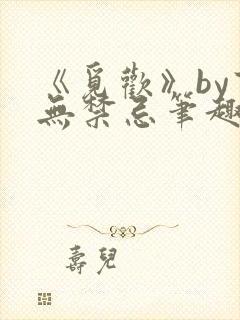 《覓歡》by
無禁忌筆趣
壽兒